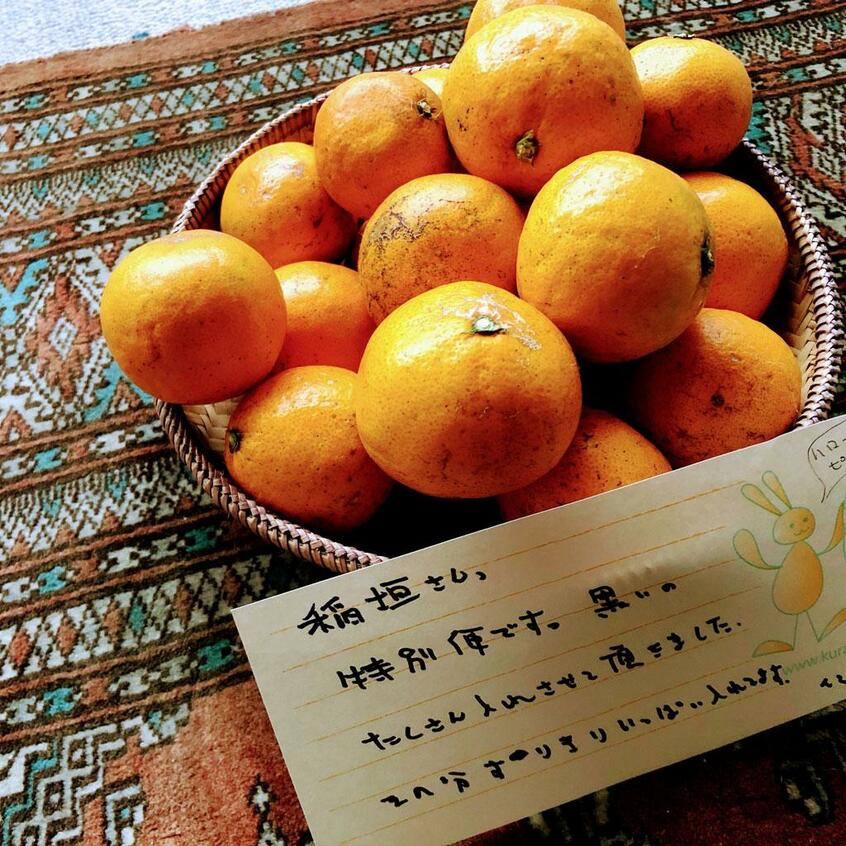 稲垣さん、
特別便です。黒いの
たくさん入れさせて頂きました。
その分ギリギリいっぱい入れてます。
ハロー
www.kura